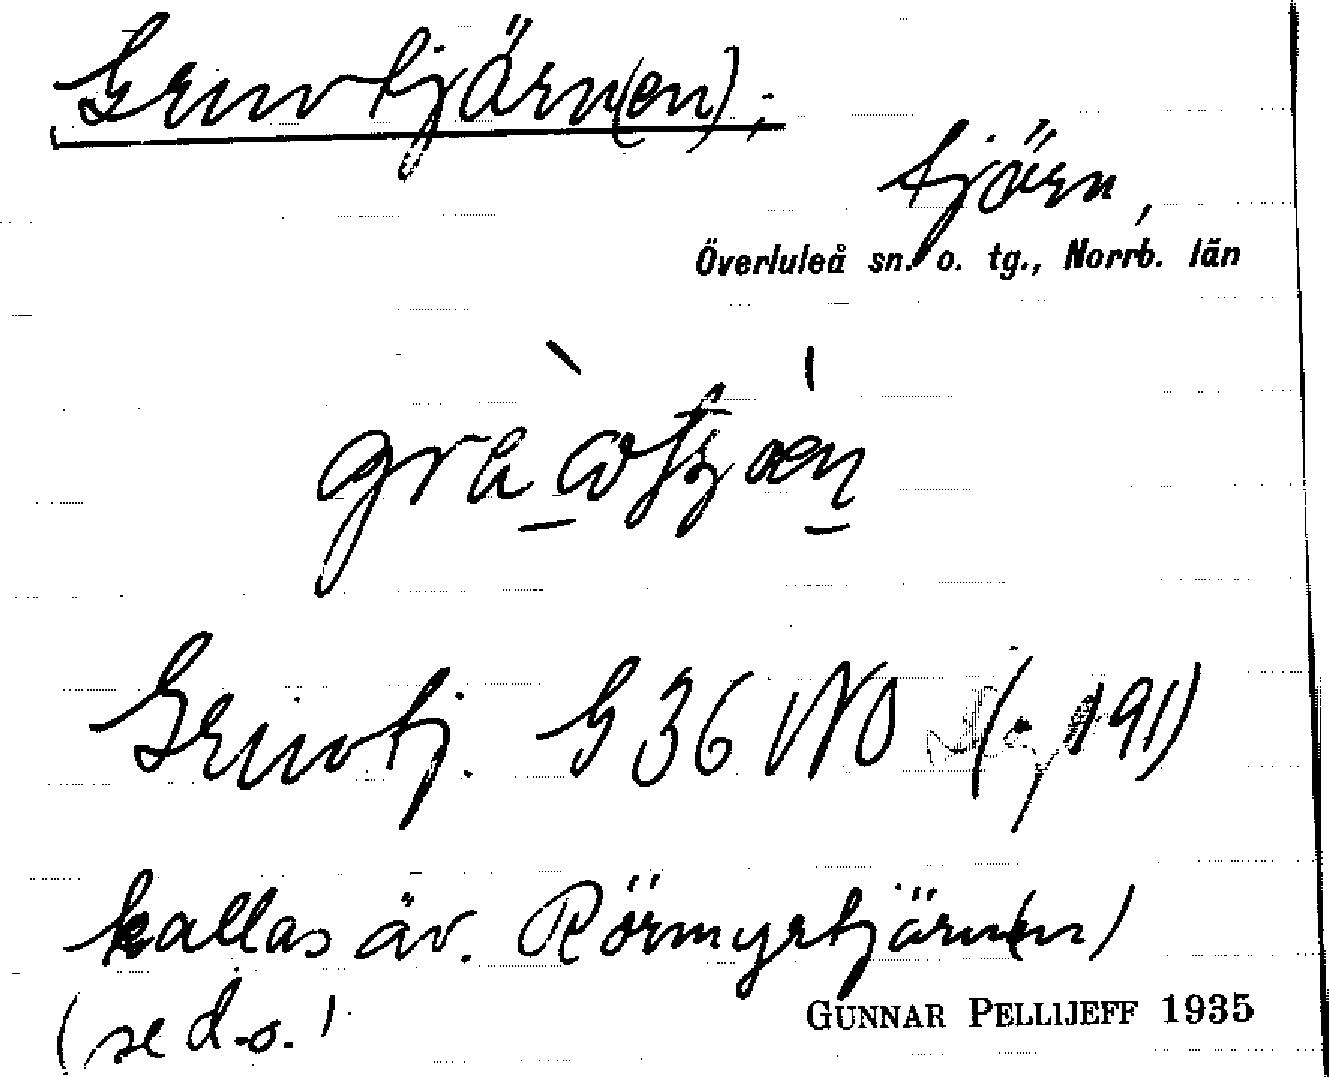 Gruvtjärn(en);
tjärn,
Överluleå sn. o. tg., Norrb. län
Gruvtj. G 36 NO (. 191)
kallas äv. Rörmyrtjärn(en)
(se d.o.)
GUNNAR PELLIJEFF 1935